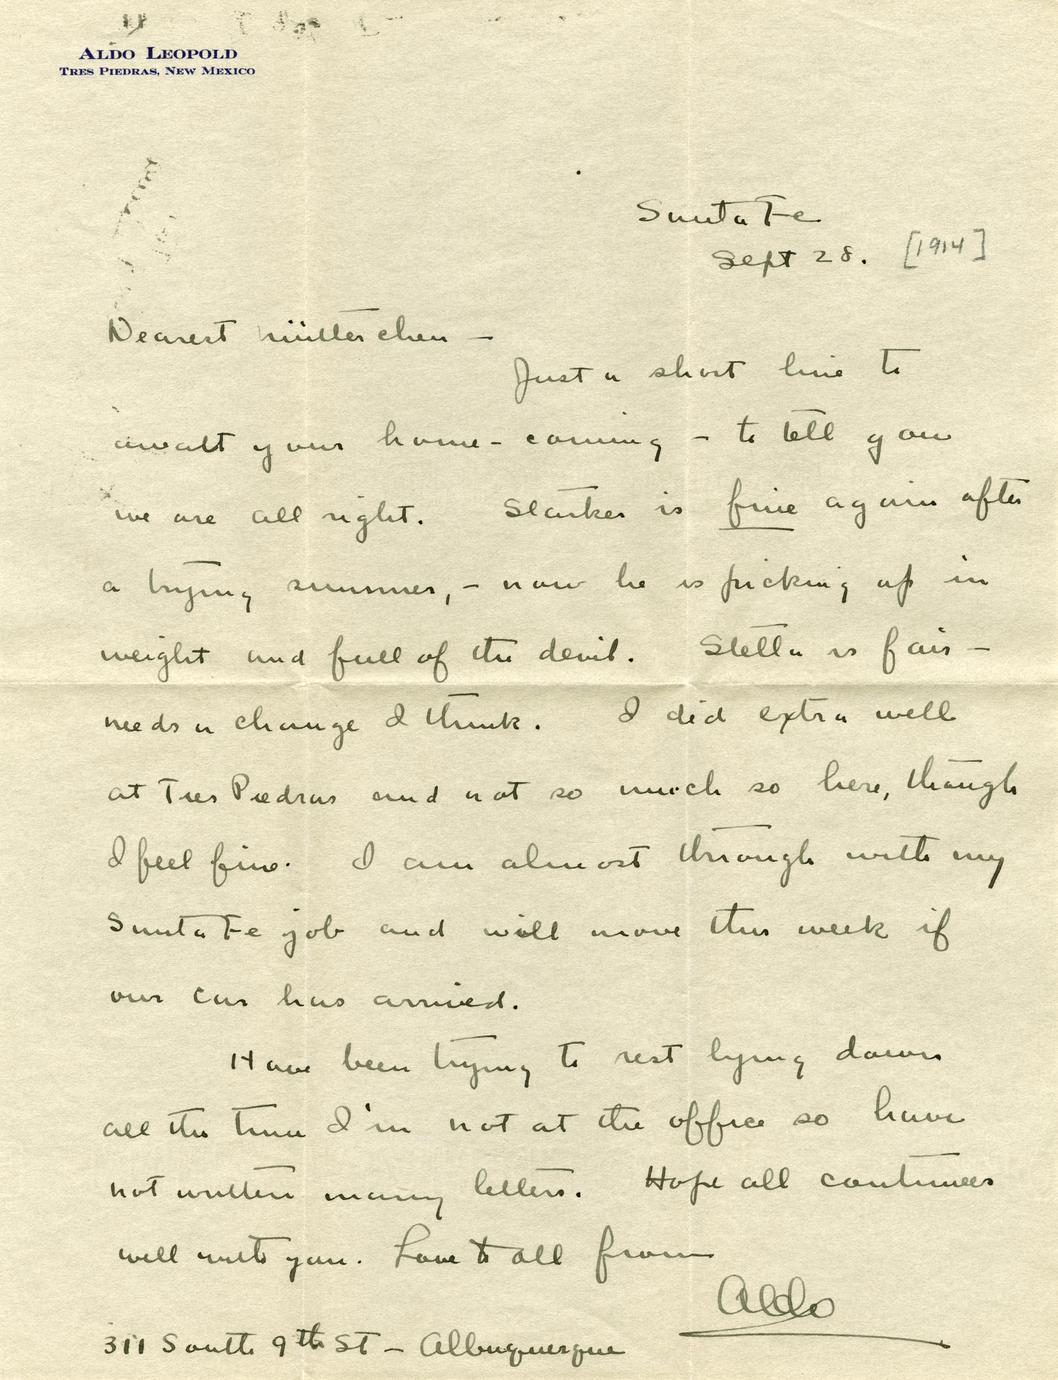 ALDO LEOPOLD
TRES PIEDRAS, NEW MEXICO
Santa Fe
Sept 28. [1914]
Dearest Mütterchen –
Just a short line to
await your home-coming – to tell you
we are all right. Starker is fine again after
a trying summer, – now he is picking up in
weight and full of the devil. Stella is fair –
needs a change I think. I did extra well
at Tres Piedras and not so much so here, though
I feel fine. I am almost through with my
Santa Fe job and will move this week if
our car has arrived.
Have been trying to rest lying down
all the time I'm not at the office so have
not written many letters. Hope all continues
well with you. Love to all from
Aldo
311 South 9th St – Albuquerque